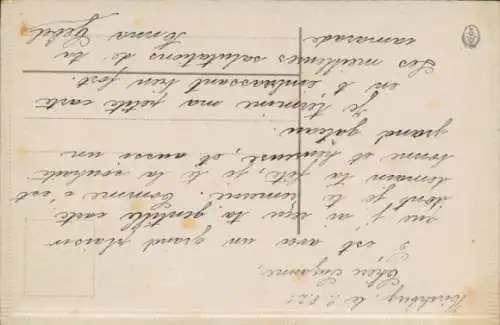 le 2.8.21
Chère Suzanne,
C'est avec un grand plaisir
que j'ai reçu ta gentille carte
dont je te remercie. Comme c'est
demain ta fête, je te la souhaite
bonne et heureuse, et aussi un
grand gateau.
Je termine ma petite carte
en t'embrassant bien fort.
Les meilleures salutations de ta
camarade Emma